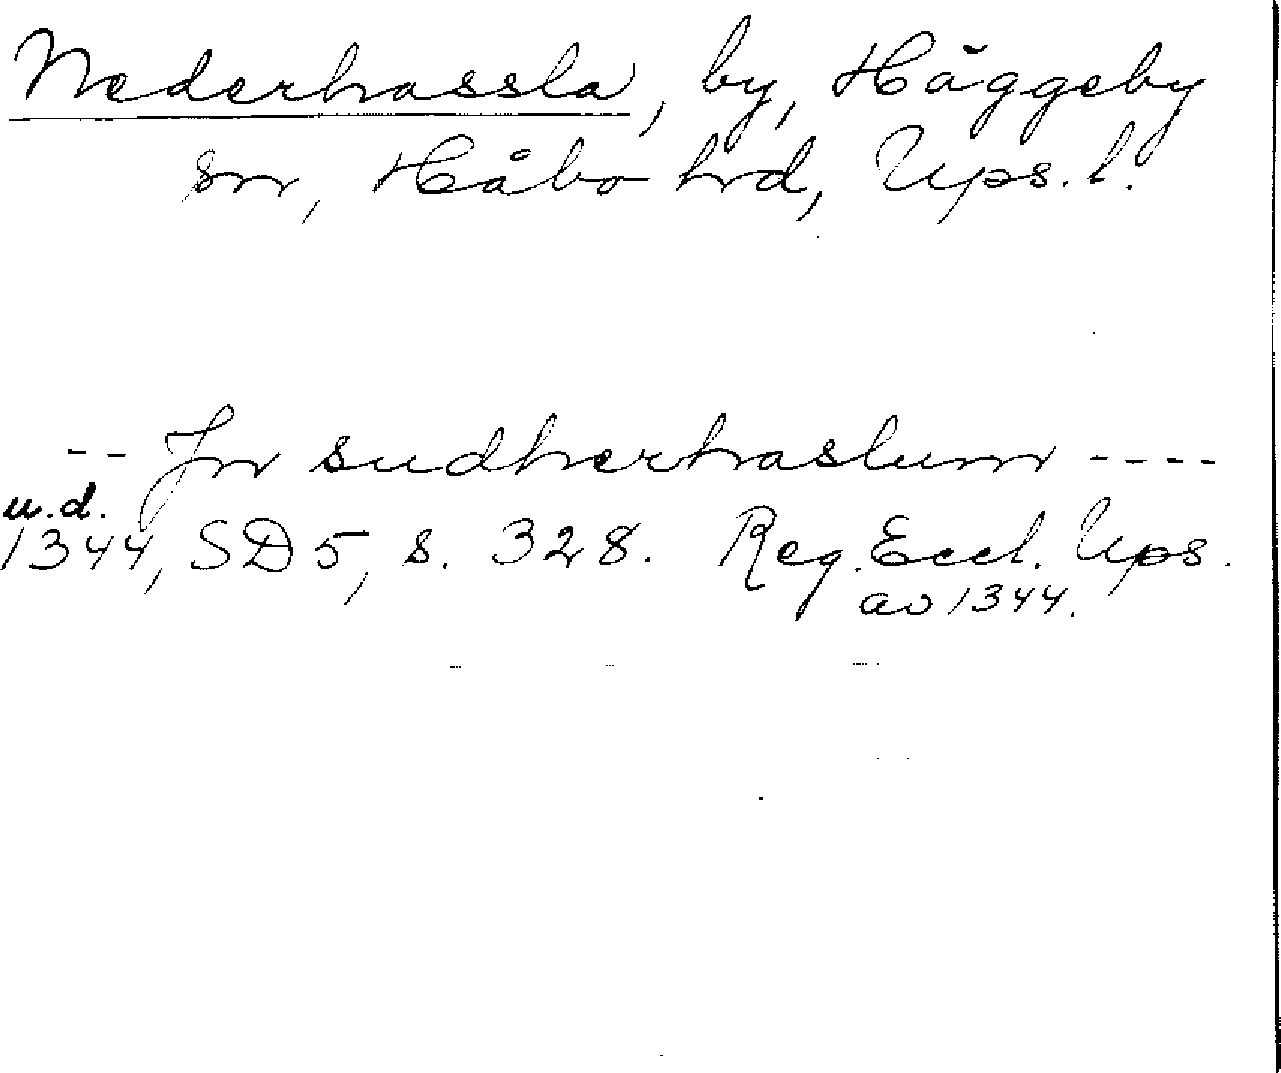 Nederhassla, by, Häggeby
sn, Håbo hd, Ups. l.
-- Jn sudherhaslum ----
u.d.
1344, SD 5, s. 328. Reg. Eccl. Ups.
av 1344.